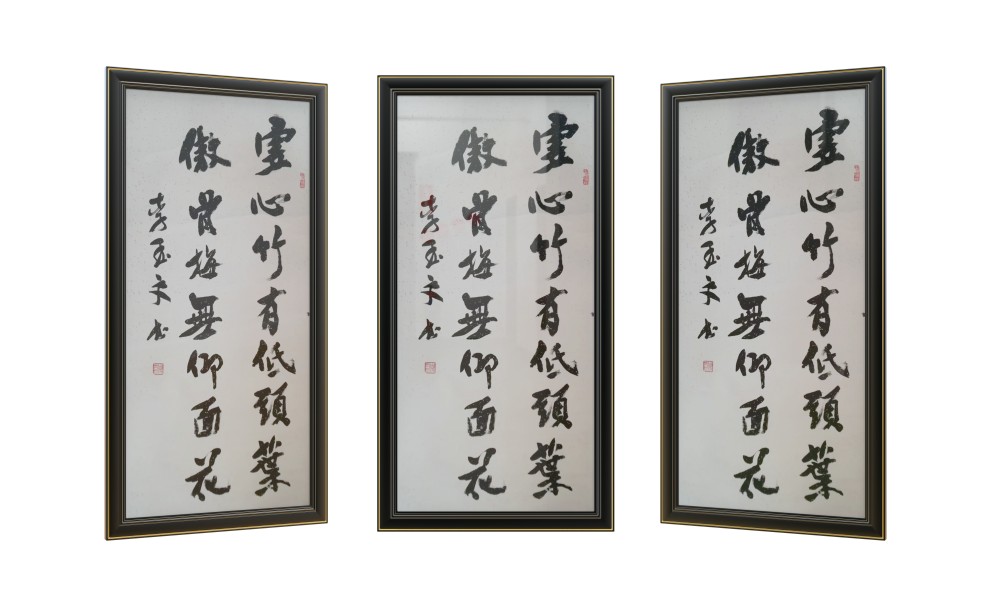 虛心竹有低頭葉
傲骨梅無仰面花
李玉文书
虛心竹有低頭葉
傲骨梅無仰面花
李玉文书
虛心竹有低頭葉
傲骨梅無仰面花
李玉文书